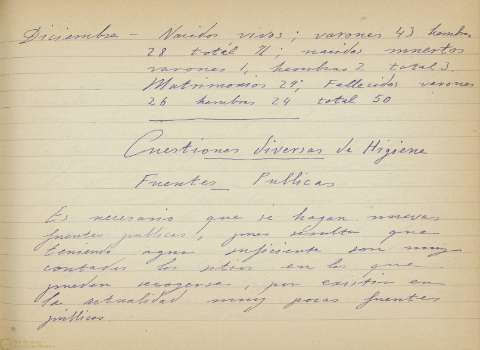 Diciembre - Nacidos vivos; varones 43 hembras
28 total 71; nacidos muertos
varones 1, hembras 2 total 3.
Matrimonios 29; Fallecidos varones
26 hembras 24 total 50
Cuestiones diversas de Higiene
Fuentes Publicas
Es necesario que se hagan nuevas
fuentes publicas, pues resulta que
teniendo agua suficiente son muy
contados los sitios en los que
puedan recogerse, por existir en
la actualidad muy pocas fuentes
públicas.